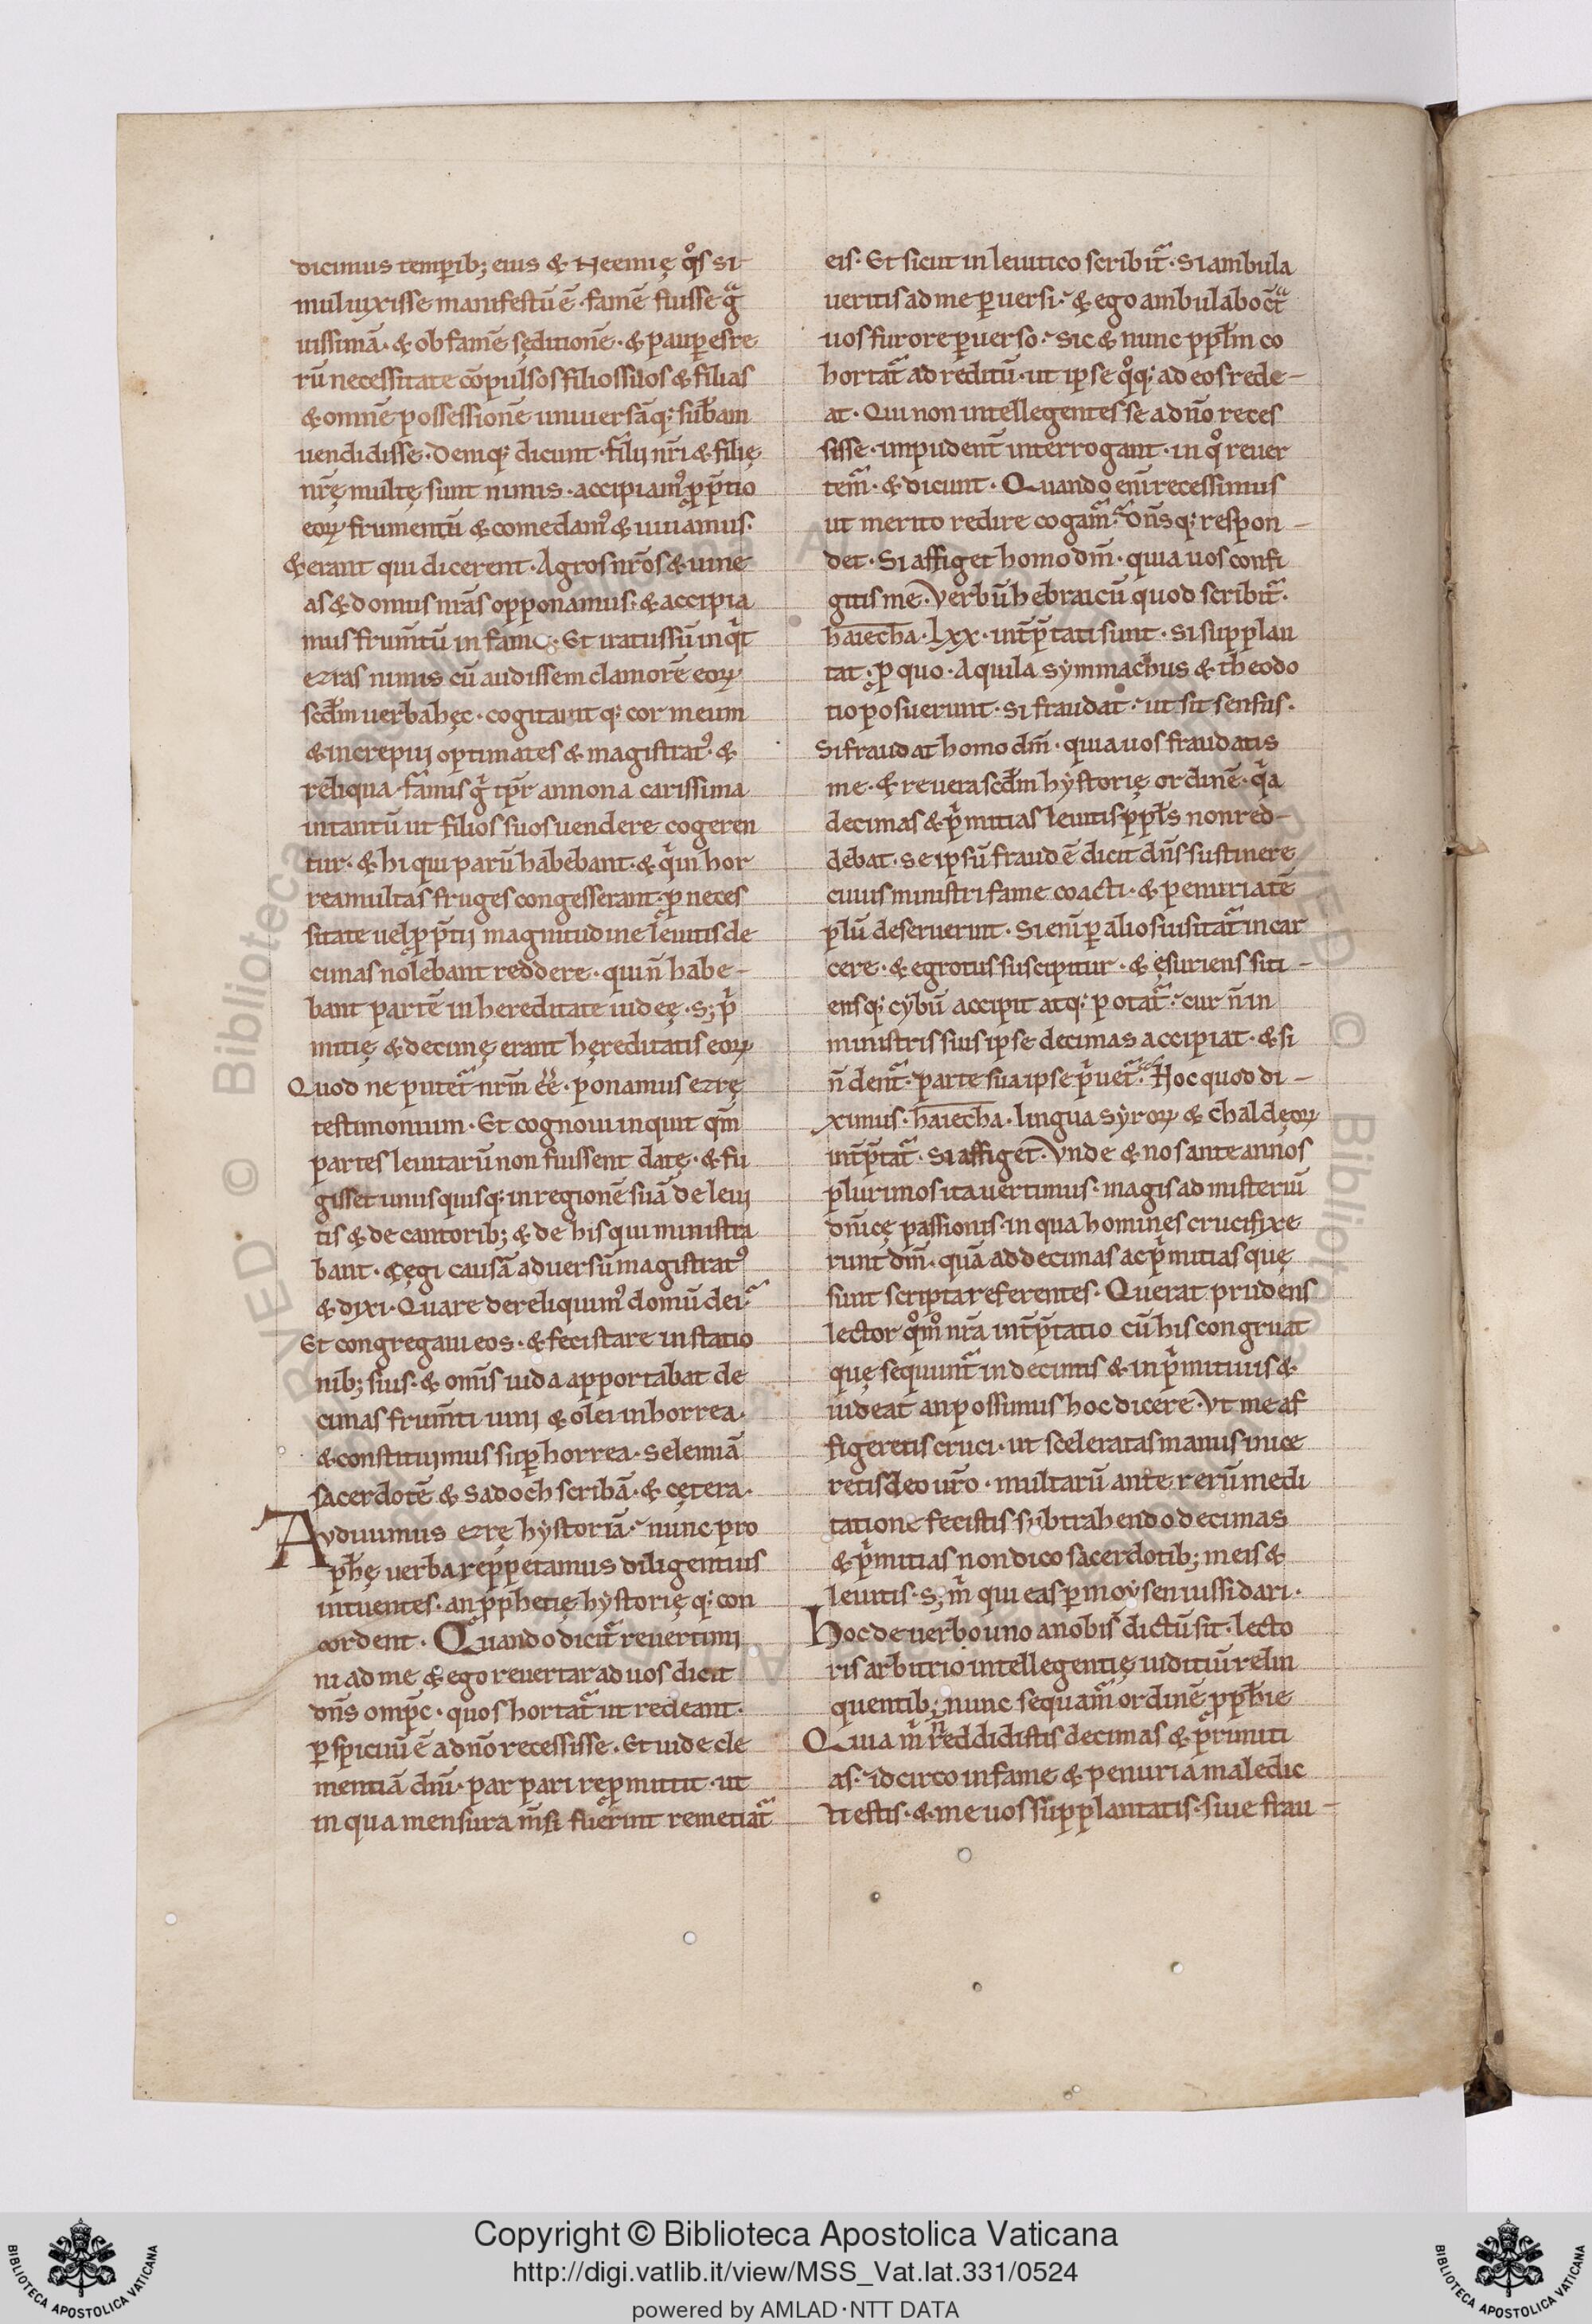 dicimus temporib; eius & Neemię q̊s si-
mul uixisse manifestū ē· famē fuisse gͣ
uissimā· & ob famē seditionē· & pauꝑes re
rū necessitate cōpulsos filios suos & filias
& omnē possessionē uniuersāq; sub̄am
uendidisse· Deniq; dicunt· filij nr̄i & filię
nr̄ę multę sunt nimis· accipiamꝰ ꝓ p̄tio
eoꝝ frumentū & comedamꝰ & uiuamus·
& erant qui dicerent· Agros nr̄os & uine
as & domus nr̄as opponamus· & accipia
mus frum̄tū in fame· Et iratus sū inqͥt
ezras nimis cū audissem clamorē eoꝝ
scd̄m uerba hęc· cogitauitq; cor meum
& increpui optimates & magistratꝰ· &
reliqua· famis gͥ tꝑr annona carissima
intantū ut filios suos uendere cogeren
tur· & hi qui parū habebant· & qͥ in hor
rea multas fruges congesserant· ꝓ neces
sitate uel ꝓ p̄tij magnitudine leuitis de
cimas nolebant reddere· qui n̄ habe-
bant partē in hereditate iudeę· s; pͥ
mitię & decimę erant hęreditatis eoꝝ
Quod ne putet᷑ nr̄m ēē· ponamus ezrę
testimonium· Et cognoui inquit qm̄
partes leuitarū non fuissent datę· & fu
gisset unusquisq; in regionē suā de leui
tis & de cantorib; & de his qui ministra
bant· & ęgi causā aduersū magistratꝰ
& dixi· Quare dereliquimꝰ domū dei?
Et congregaui eos· & feci stare in statio
nib; suis· & omīs iuda apportabat de
cimas frum̄ti uini & olei in horrea·
& constituimus suꝑ horrea· selemiā
sacerdotē & sadoch scribā· & cętera·
Avdiuimus ezrę hystoriā· nunc pro
ph̄ę uerba reppetamus diligentius
intuentes· an ꝓphetię hystorięq; con
cordent· Quando dicit᷑ reuertimi
ni ad me & ego reuertar ad uos dicit
dn̄s omp̄c· quos hortat᷑ ut redeant·
ꝑspicuū ē a dn̄o recessisse· Et uide cle
mentiā dn̄i· par pari repmittit· ut
in qua mensura m̄si fuerint remetiat᷑
eis· Et sicut in leuitico scribit᷑· si ambula
ueritis ad me ꝑuersi· & ego ambulabo ct̄ͣ
uos furore ꝑuerso· sic & nunc ppl̄m co
hortat᷑ ad reditū· ut ipse qͦq; ad eos rede-
at· Qui non intellegentes se a dn̄o reces
sisse· impudent̄ interrogant· in qͦ reuer
tem᷑· & dicunt· Quando eni recessimus
ut merito redire cogam᷑? Dn̄sq; respon-
det· Si affiget homo dm̄· quia uos confi
gitis me· Verbū hebraicū quod scribit᷑·
haiecha· lxx· int̄p̄tati sunt· si supplan
tat· ꝓ quo· Aquila symmachus & theodo
tio posuerunt· si fraudat· ut sit sensus·
Si fraudat homo dm̄· quia uos fraudatis
me· & reuera scd̄m hystorię ordinē· qͥa
decimas & pͥmitias leuitis ppl̄s non red-
debat· se ipsū fraudē dicit dn̄s sustinere
cuius ministri fame coacti· & penuria tē
plū deseruerint· Si eni ꝑ alios uisitat᷑ in car
cere· & egrotus suscipitur· & ęsuriens siti-
ensq; cybū accipit atq; potat᷑· cur n̄ in
ministris suis ipse decimas accipiat· & si
n̄ dent᷑· parte sua ipse pͥuet᷑? Hoc quod di-
ximus· haiecha· lingua syroꝝ & chaldęoꝝ
int̄p̄tat᷑· si affiget· Vnde & nos ante annos
plurimos ita uertimus· magis ad misteriū
dn̄icę passionis· in qua homines crucifixe
runt dm̄· quā ad decimas ac pͥmitias quę
sunt scripta referentes· Querat prudens
lector qͦmͦ nr̄a int̄p̄tatio cū his congruat
quę sequunt᷑ in decimis & in pͥmitiuis &
uideat an possimus hoc dicere· Vt me af
figeretis cruci· ut sceleratas manus inice
retis deo ur̄o· multarū ante rerū medi
tatione fecistis subtrahendo decimas
& pͥmitias non dico sacerdotib; meis &
leuitis· s; m̄ qui eas ꝑ moysen iussi dari·
Hoc de uerbo uno a nobis dictū sit· lecto
ris arbitrio intellegentię iuditiū relin
quentib; nunc sequam᷑ ordinē ꝓph̄ie
Quia m̄ n̄ reddidistis decimas & primiti
as· idcirco in fame & penuria maledic
ti estis· & me uos supplantatis· siue frau-
Copyright © Biblioteca Apostolica Vaticana
http://digi.vatlib.it/view/MSS_Vat.lat.331/0524
powered by AMLAD·NTT DATA